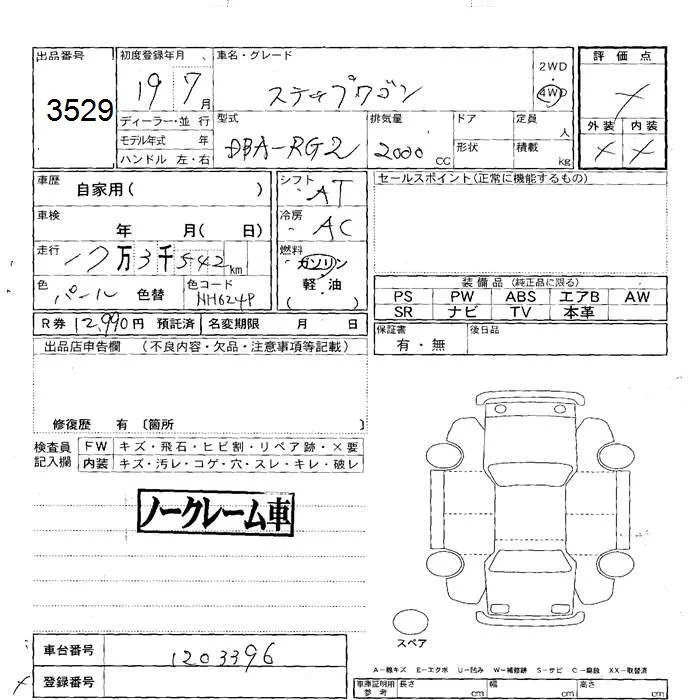 出品番号
3529
初度登録年月
19 7月
車名・グレード
ステップワゴン
2WD
4WD
評価点
外装 内装
ディーラー・並行
モデル年式 年
ハンドル 左・右
型式
DBA-RG2
排気量
2000 CC
ドア
形状
定員
人
積載
kg
車歴
自家用( )
シフト
AT
セールスポイント(正常に機能するもの)
車検
年 月( 日)
冷房
AC
走行
17万3千542km
燃料
ガソリン
軽・油
( )
色
パール 色替
色コード
NH624P
装備品(純正品に限る)
PS PW ABS エアB AW
SR ナビ TV 本革
R券 12,990円 預託済
名変期限 月 日
保証書
有・無
後日品
出品店申告欄 (不良内容・欠品・注意事項等記載)
修復歴 有 〔箇所 〕
検査員
記入欄
FW キズ・飛石・ヒビ割・リペア跡・×要
内装 キズ・汚レ・コゲ・穴・スレ・キレ・破レ
ノークレーム車
スペア
車台番号
1203396
登録番号
A-線キズ E-エクボ U-凹み W-補修跡 S-サビ C-腐蝕 XX-取替済
車庫証明用
参考
長さ cm
幅 cm
高さ cm